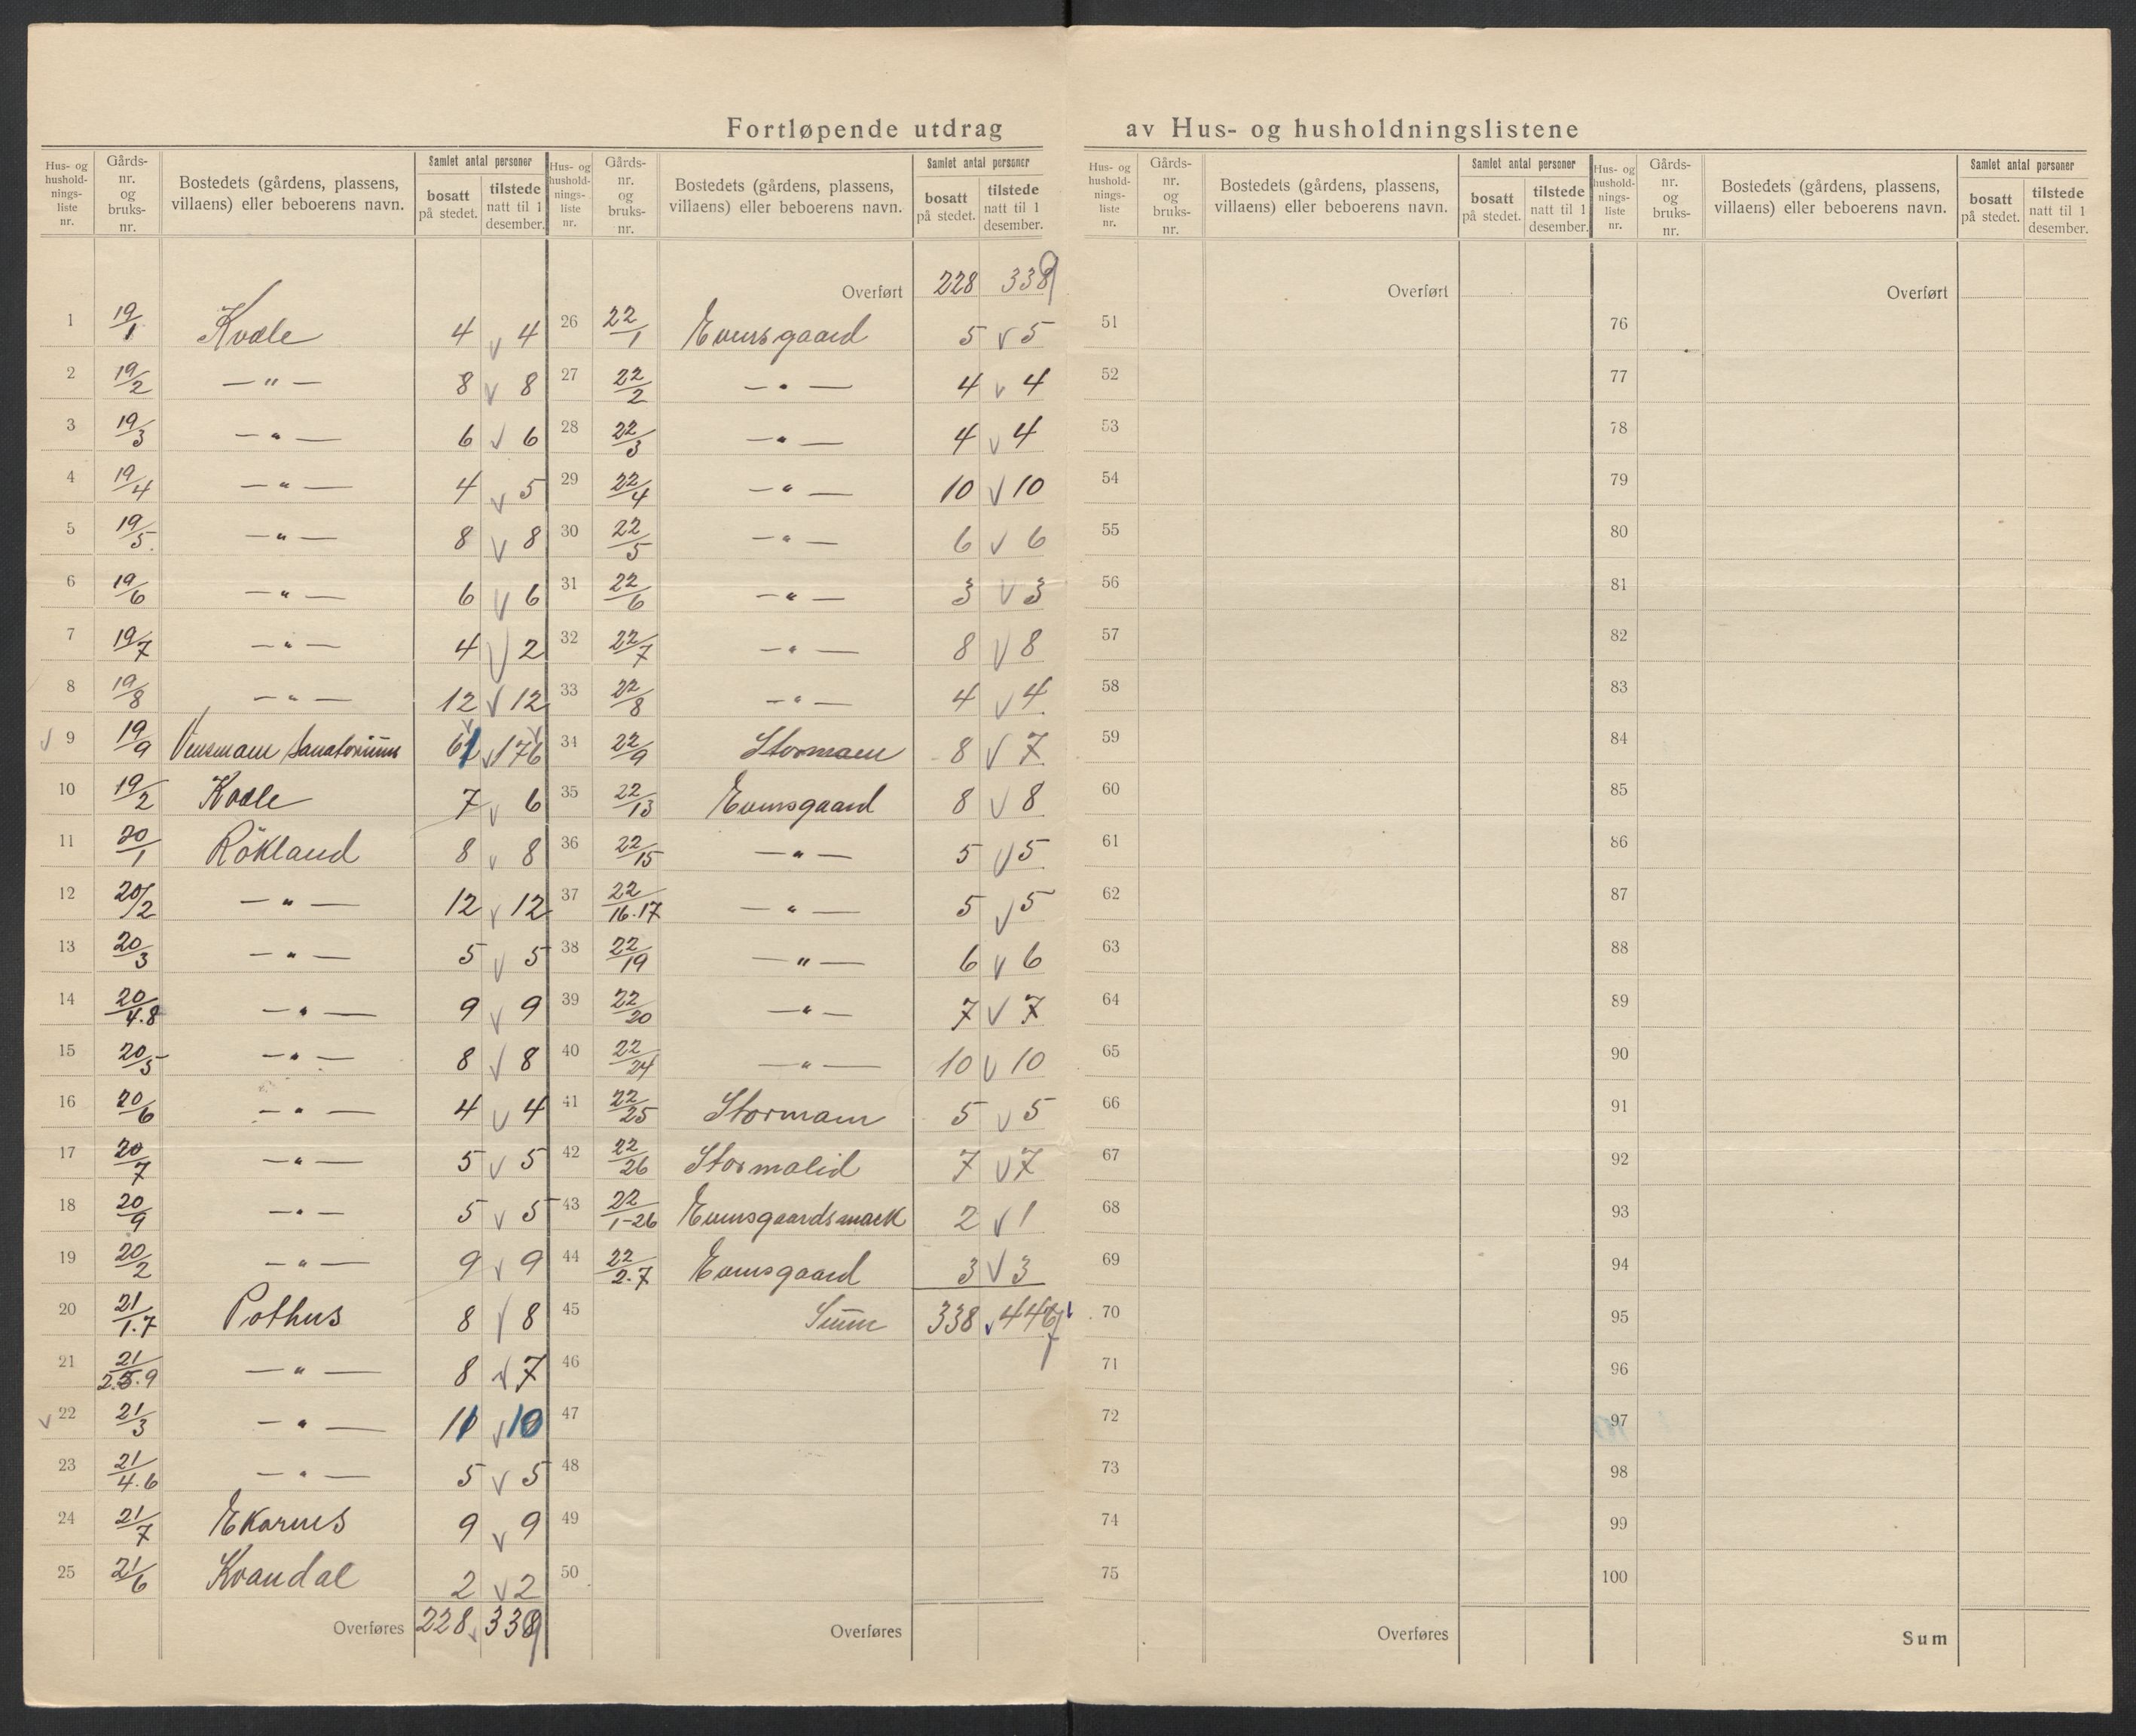 Fortløpende utdrag av Hus- og husholdningslistene
Hus- og hushold-nings-liste nr. Gårds-nr. og bruks-nr. Bostedets (gårdens, plassens, villaens) eller beboerens navn. Samlet antal personer bosatt på stedet. tilstede natt til 1 desember.
1 19/1 Kvæle 4 v 4
2 19/2 — " — 8 v 8
3 19/3 — " — 6 v 6
4 19/4 — " — 4 v 5
5 19/5 — " — 8 v 8
6 19/6 — " — 6 v 6
7 19/7 — " — 4 v 2
8 19/8 — " — 12 v 12
v 9 19/9 Vensmoen Sanatorium 61 v 176
10 19/2 Kvæle 7 v 6
11 20/1 Rökland 8 v 8
12 20/2 — " — 12 v 12
13 20/3 — " — 5 v 5
14 20/4.8 — " — 9 v 9
15 20/5 — " — 8 v 8
16 20/6 — " — 4 v 4
17 20/7 — " — 5 v 5
18 20/9 — " — 5 v 5
19 20/2 — " — 9 v 9
20 21/1.7 Pothus 8 v 8
21 21/2.5.9 — " — 8 v 7
v 22 21/3 — " — 11 v 10
23 21/4.6 — " — 5 v 5
24 21/7 Ekornes 9 v 9
25 21/6 Kvandal 2 v 2
Overføres 228 v 339
Hus- og hushold-nings-liste nr. Gårds-nr. og bruks-nr. Bostedets (gårdens, plassens, villaens) eller beboerens navn. Samlet antal personer bosatt på stedet. tilstede natt til 1 desember.
Overført 228 339
26 22/1 Evensgaard 5 v 5
27 22/2 — " — 4 v 4
28 22/3 — " — 4 v 4
29 22/4 — " — 10 v 10
30 22/5 — " — 6 v 6
31 22/6 — " — 3 v 3
32 22/7 — " — 8 v 8
33 22/8 — " — 4 v 4
34 22/9 Stormoen 8 v 7
35 22/13 Evensgaard 8 v 8
36 22/15 — " — 5 v 5
37 22/16.17 — " — 5 v 5
38 22/19 — " — 6 v 6
39 22/20 — " — 7 v 7
40 22/24 — " — 10 v 10
41 22/25 Stormoen 5 v 5
42 22/26 Stormolid 7 v 7
43 22/1-26 Evensgaardsmark 2 v 1
44 22/2.7 Evensgaard 3 v 3
45 Sum 338 v 447
46
47
48
49
50
Overføres
Hus- og hushold-nings-liste nr. Gårds-nr. og bruks-nr. Bostedets (gårdens, plassens, villaens) eller beboerens navn. Samlet antal personer bosatt på stedet. tilstede natt til 1 desember.
Overført
51
52
53
54
55
56
57
58
59
60
61
62
63
64
65
66
67
68
69
70
71
72
73
74
75
Overføres
Hus- og hushold-nings-liste nr. Gårds-nr. og bruks-nr. Bostedets (gårdens, plassens, villaens) eller beboerens navn. Samlet antal personer bosatt på stedet. tilstede natt til 1 desember.
Overført
76
77
78
79
80
81
82
83
84
85
86
87
88
89
90
91
92
93
94
95
96
97
98
99
100
Sum